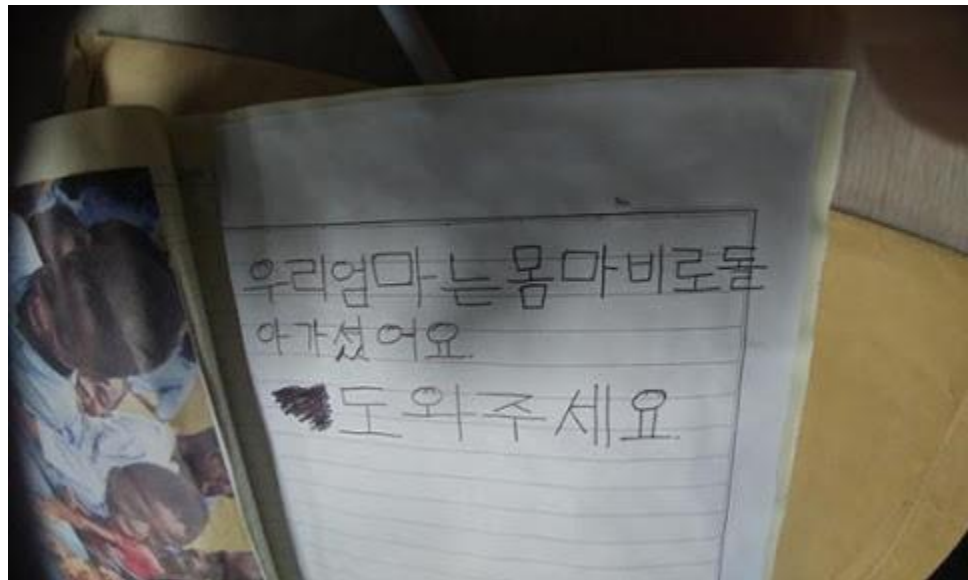 우리엄마는몸마비로돌
아가셨어요.
도와주세요